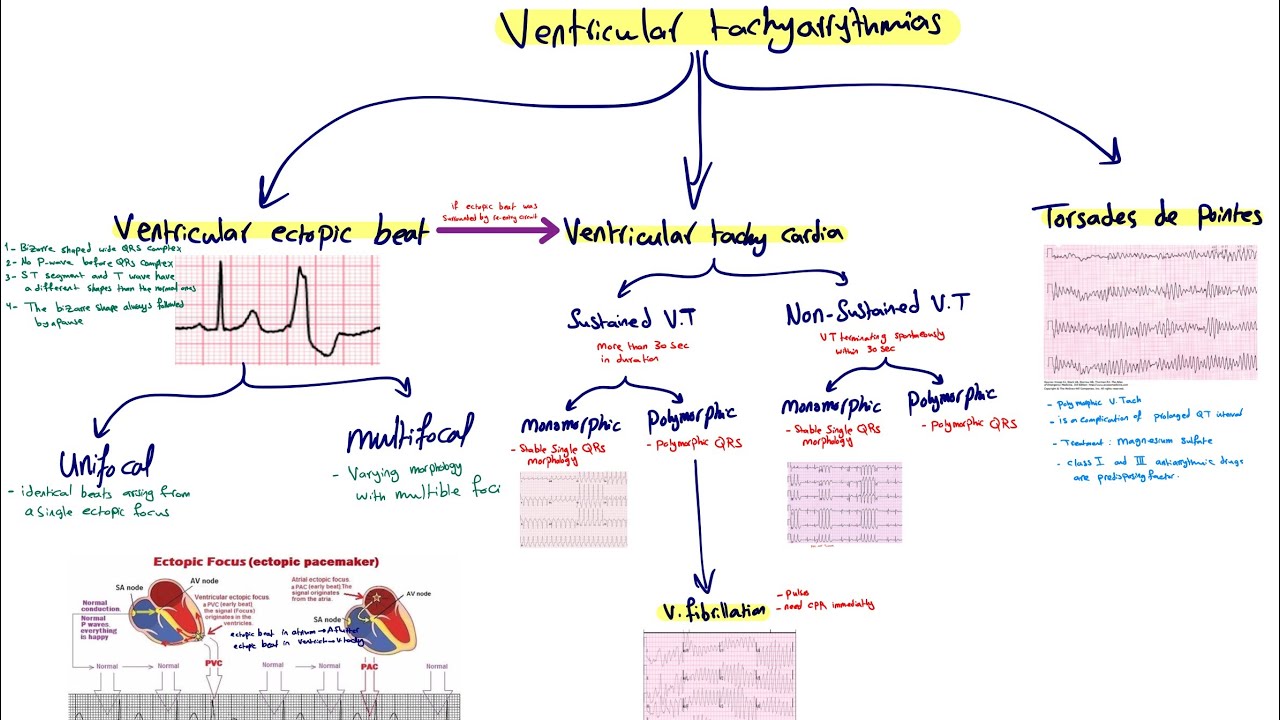 Ventricular tachyarrythmias
Ventricular ectopic beat
if ectopic beat was
surrounded by re-entry circuit
Ventricular tachy cardia
Torsades de pointes
1- Bizarre shaped wide QRS complex
2- No P-wave before QRS complex
3- ST segment and T wave have
a different shapes than the normal ones
4- The bizarre shape always followed
by a pause
Unifocal
- identical beats arising from
a single ectopic focus
multifocal
- Varying morphology
with multible foci
Sustained V.T
more than 30 sec
in duration
Non-Sustained V.T
VT terminating spontaneously
within 30 sec
monomorphic
- Stable Single QRS
morphology
Polymorphic
- Polymorphic QRS
Monomorphic
- Stable Single QRS
morphology
Polymorphic
- Polymorphic QRS
V. fibrillation
- pulse
- need CPR immediatly
- Polymorphic V.Tach
- is a complication of prolonged QT interval
- Treatment: magnesium sulfate
- class I and III antiarrythmic drugs
are predisposing factor.
Ectopic Focus (ectopic pacemaker)
SA node
AV node
Normal
conduction.
Normal
P waves.
everything
is happy
Ventricular ectopic focus.
a PVC (early beat)
the signal (Focus)
originates in the
ventricles.
Atrial ectopic focus.
a PAC (early beat) The
signal originates
from the atria.
AV node
SA node
ectopic beat in atrium → A flutter
ectopic beat in ventricl → V tachy
Normal
Normal
PVC
Normal
Normal
PAC
Normal